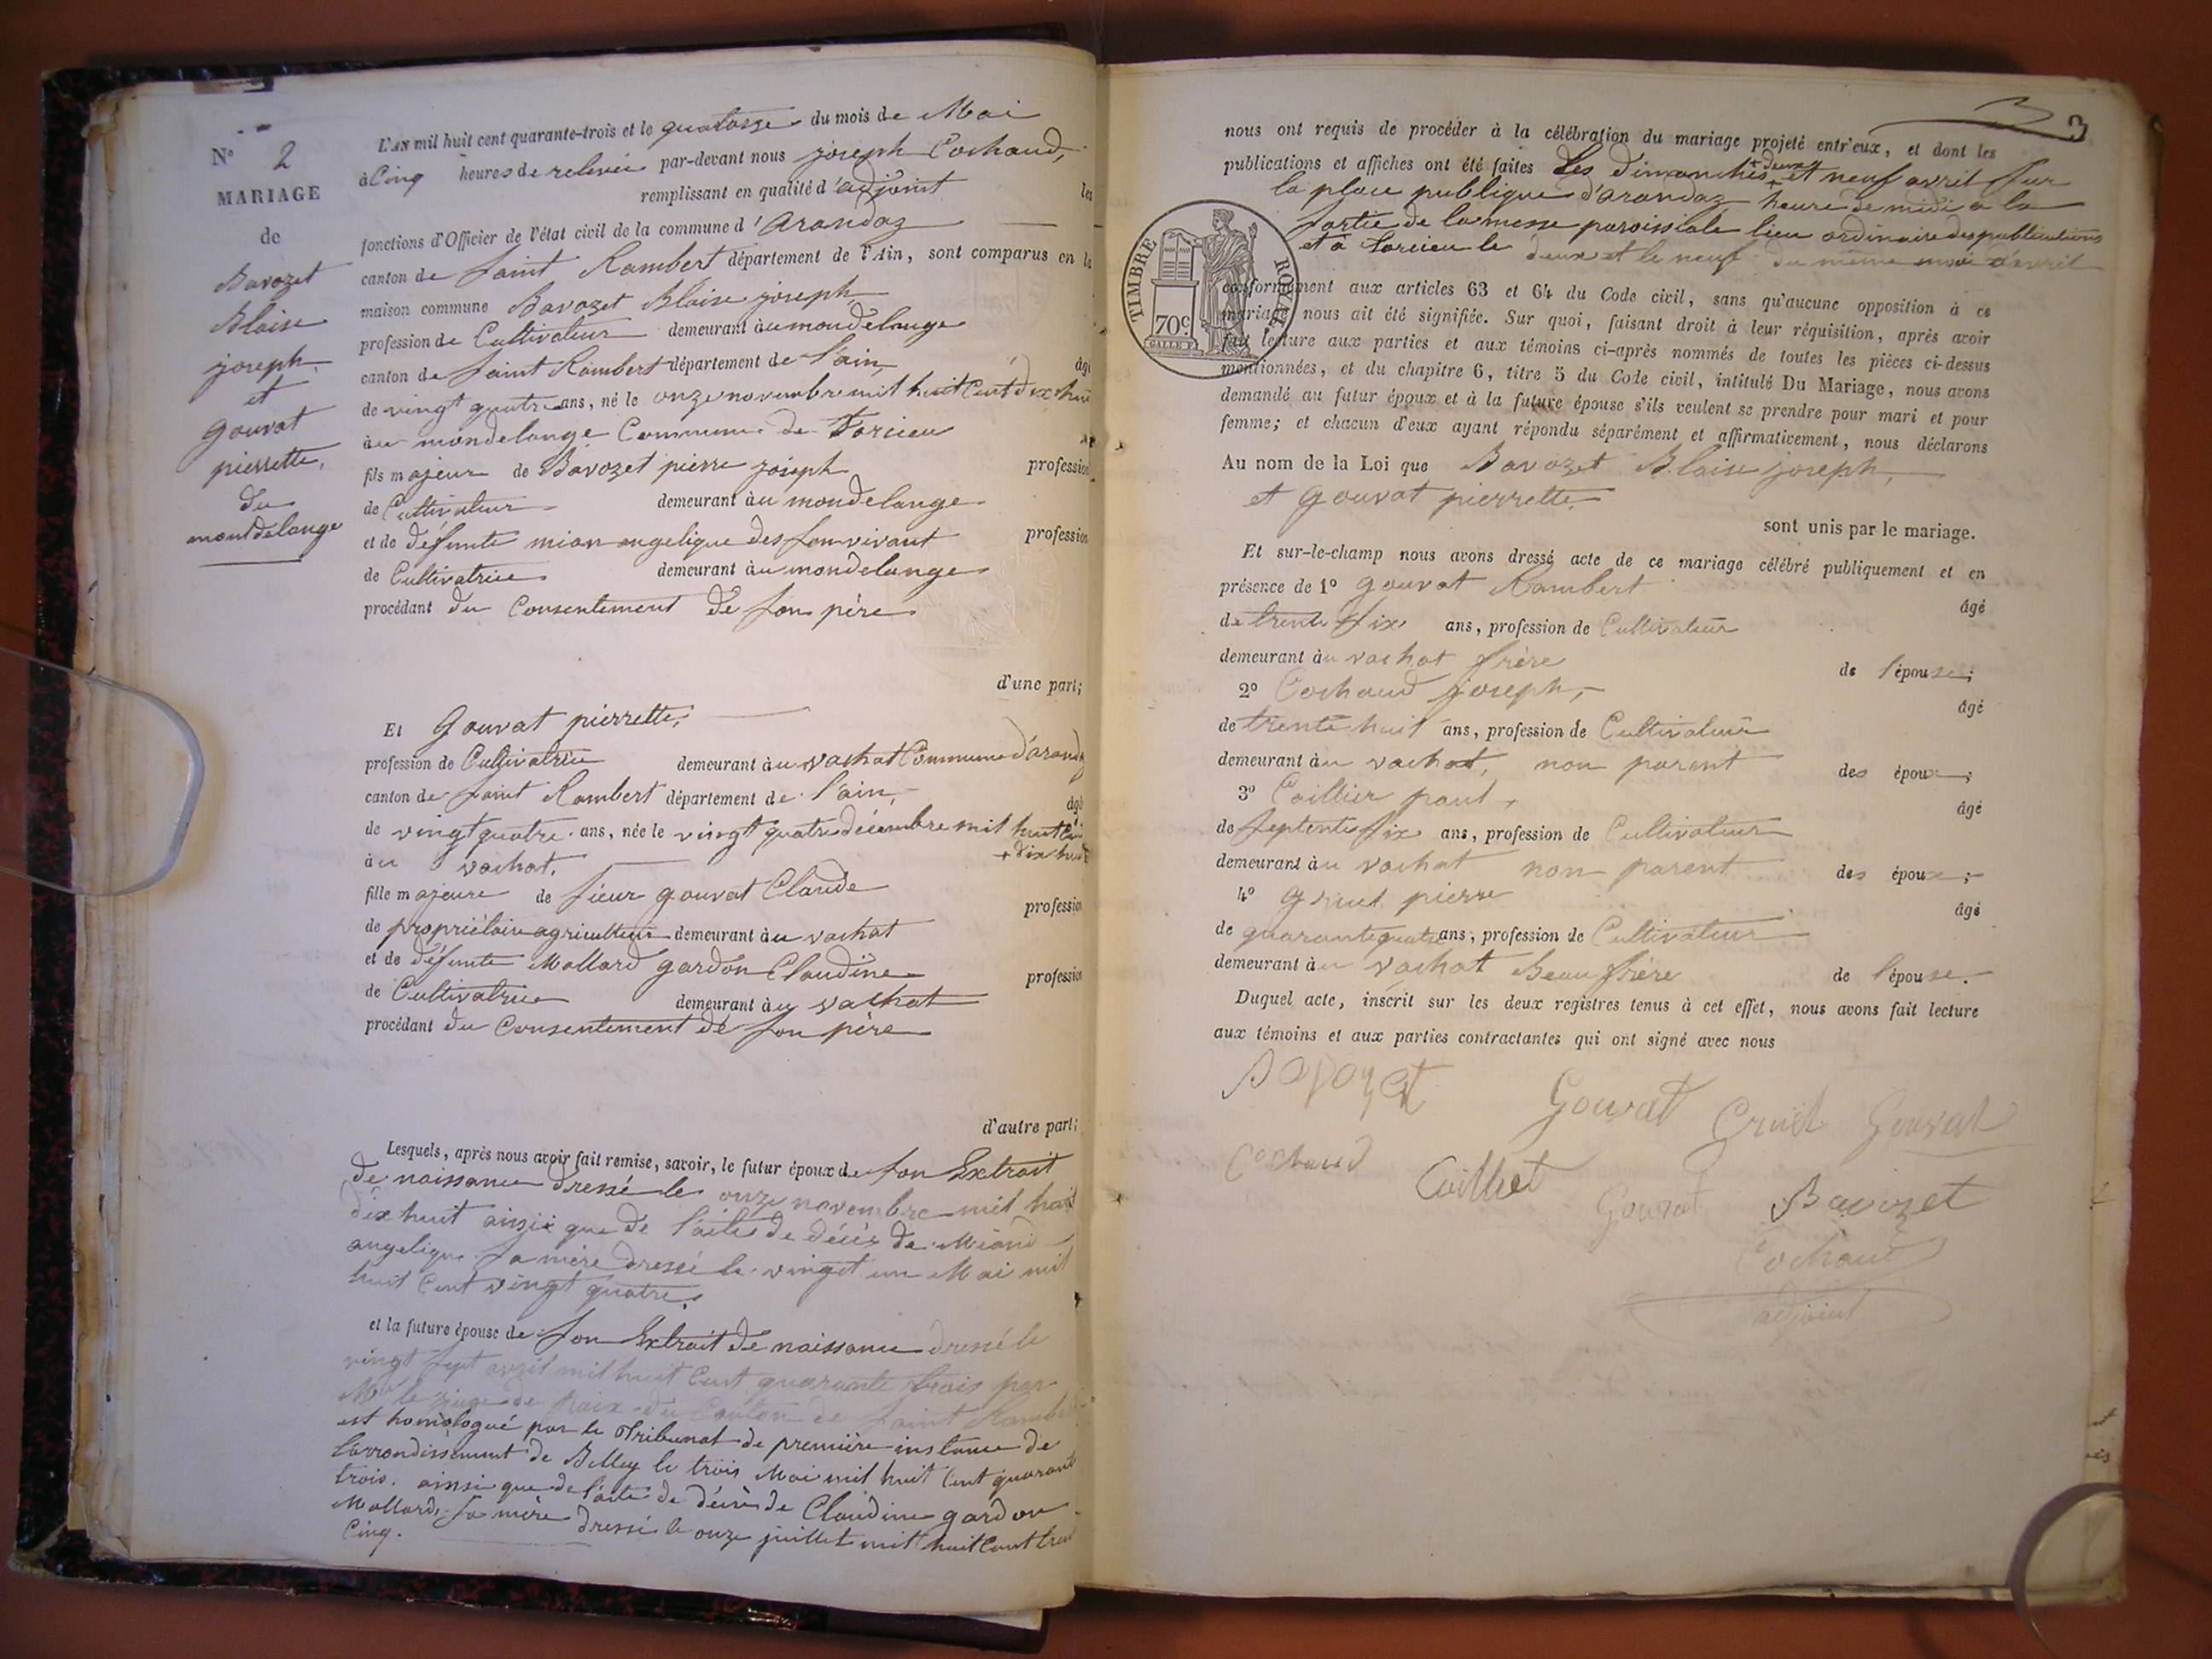 N° 2
MARIAGE
de
Bavozet
Blaise
joseph
et
gouvat
pierrette,
du
montdelange
L'AN mil huit cent quarante-trois et le quatorze du mois de Mai
à Cinq heures de relevée par-devant nous joseph Cochaud,
remplissant en qualité d'adjoint les
fonctions d'Officier de l'état civil de la commune d'arandaz
canton de Saint Rambert département de l'Ain, sont comparus en la
maison commune Bavozet Blaise joseph
profession de Cultivateur demeurant àu mondelange
canton de Saint Rambert département de l'ain, âgé
de vingt quatre ans, né le onze novembre mil huit Cent dix huit
àu mondelange Commune de Torcieu
fils majeur de Bavozet pierre joseph profession
de Cultivateur demeurant àu mondelange
et de défunte mian angelique des son vivant profession
de Cultivatrice demeurant àu mondelange
procédant du Consentement de son père
d'une part;
Et Gouvat pierrette,
profession de Cultivatrice demeurant àu vachat Commune d'arandaz
canton de Saint Rambert département de l'ain, âgé
de vingt quatre ans, née le vingt quatre décembre mil huit Cent
+ dix huit
àu vachat.
fille majeure de sieur gouvat Claude profession
de propriétaire agriculteur demeurant àu vachat
et de défunte Mollard gardon Claudine profession
de Cultivatrice demeurant àu vachat
procédant du Consentement de son père
d'autre part;
Lesquels, après nous avoir fait remise, savoir, le futur époux de son Extrait
de naissance dressé le onze novembre mil huit
dix huit ainsi que de l'acte de décès de Miand
angelique sa mère dressé le vingt un Mai mil
huit Cent vingt quatre.
et la future épouse de son Extrait de naissance dressé le
vingt sept avril mil huit Cent quarante trois par
Mr le juge de Paix du Canton de Saint Rambert
est homologué par le Tribunal de première instance de
l'arrondissement de Belley le trois Mai mil huit Cent quarante
trois. ainsi que de l'acte de décès de Claudine gardon
Mollard, sa mère dressé le onze juillet mil huit Cent trente
Cinq.
3
nous ont requis de procéder à la célébration du mariage projeté entr'eux, et dont les
publications et affiches ont été faites Les dimanches + deux + et neuf avril sur
la place publique d'arandaz heure de midi a la
sortie de la messe paroissiale lieu ordinaire des publications
et à Torcieu le deux et le neuf du même mois d'avril
TIMBRE ROYAL
70c.
conformément aux articles 63 et 64 du Code civil, sans qu'aucune opposition à ce
mariage nous ait été signifiée. Sur quoi, faisant droit à leur réquisition, après avoir
fait lecture aux parties et aux témoins ci-après nommés de toutes les pièces ci-dessus
mentionnées, et du chapitre 6, titre 5 du Code civil, intitulé Du Mariage, nous avons
demandé au futur époux et à la future épouse s'ils veulent se prendre pour mari et pour
femme; et chacun d'eux ayant répondu séparément et affirmativement, nous déclarons
Au nom de la Loi que Bavozet Blaise joseph,
et gouvat pierrette
sont unis par le mariage.
Et sur-le-champ nous avons dressé acte de ce mariage célébré publiquement et en
présence de 1° gouvat Rambert âgé
de trente six ans, profession de Cultivateur
demeurant àu vachat frère de l'épouse;
2° Cochaud joseph, âgé
de trente huit ans, profession de Cultivateur
demeurant àu vachat, non parent des époux;
3° Caillier paul, âgé
de septente six ans, profession de Cultivateur
demeurant àu vachat non parent des époux;
4° Gruel pierre âgé
de quarante quatre ans, profession de Cultivateur
demeurant àu vachat Beau frère de l'épouse.
Duquel acte, inscrit sur les deux registres tenus à cet effet, nous avons fait lecture
aux témoins et aux parties contractantes qui ont signé avec nous
Bavozet Gouvat Cruel Gouvat
Cochaud Caillet Gouvat Bavozet
Cochaud
adjoint